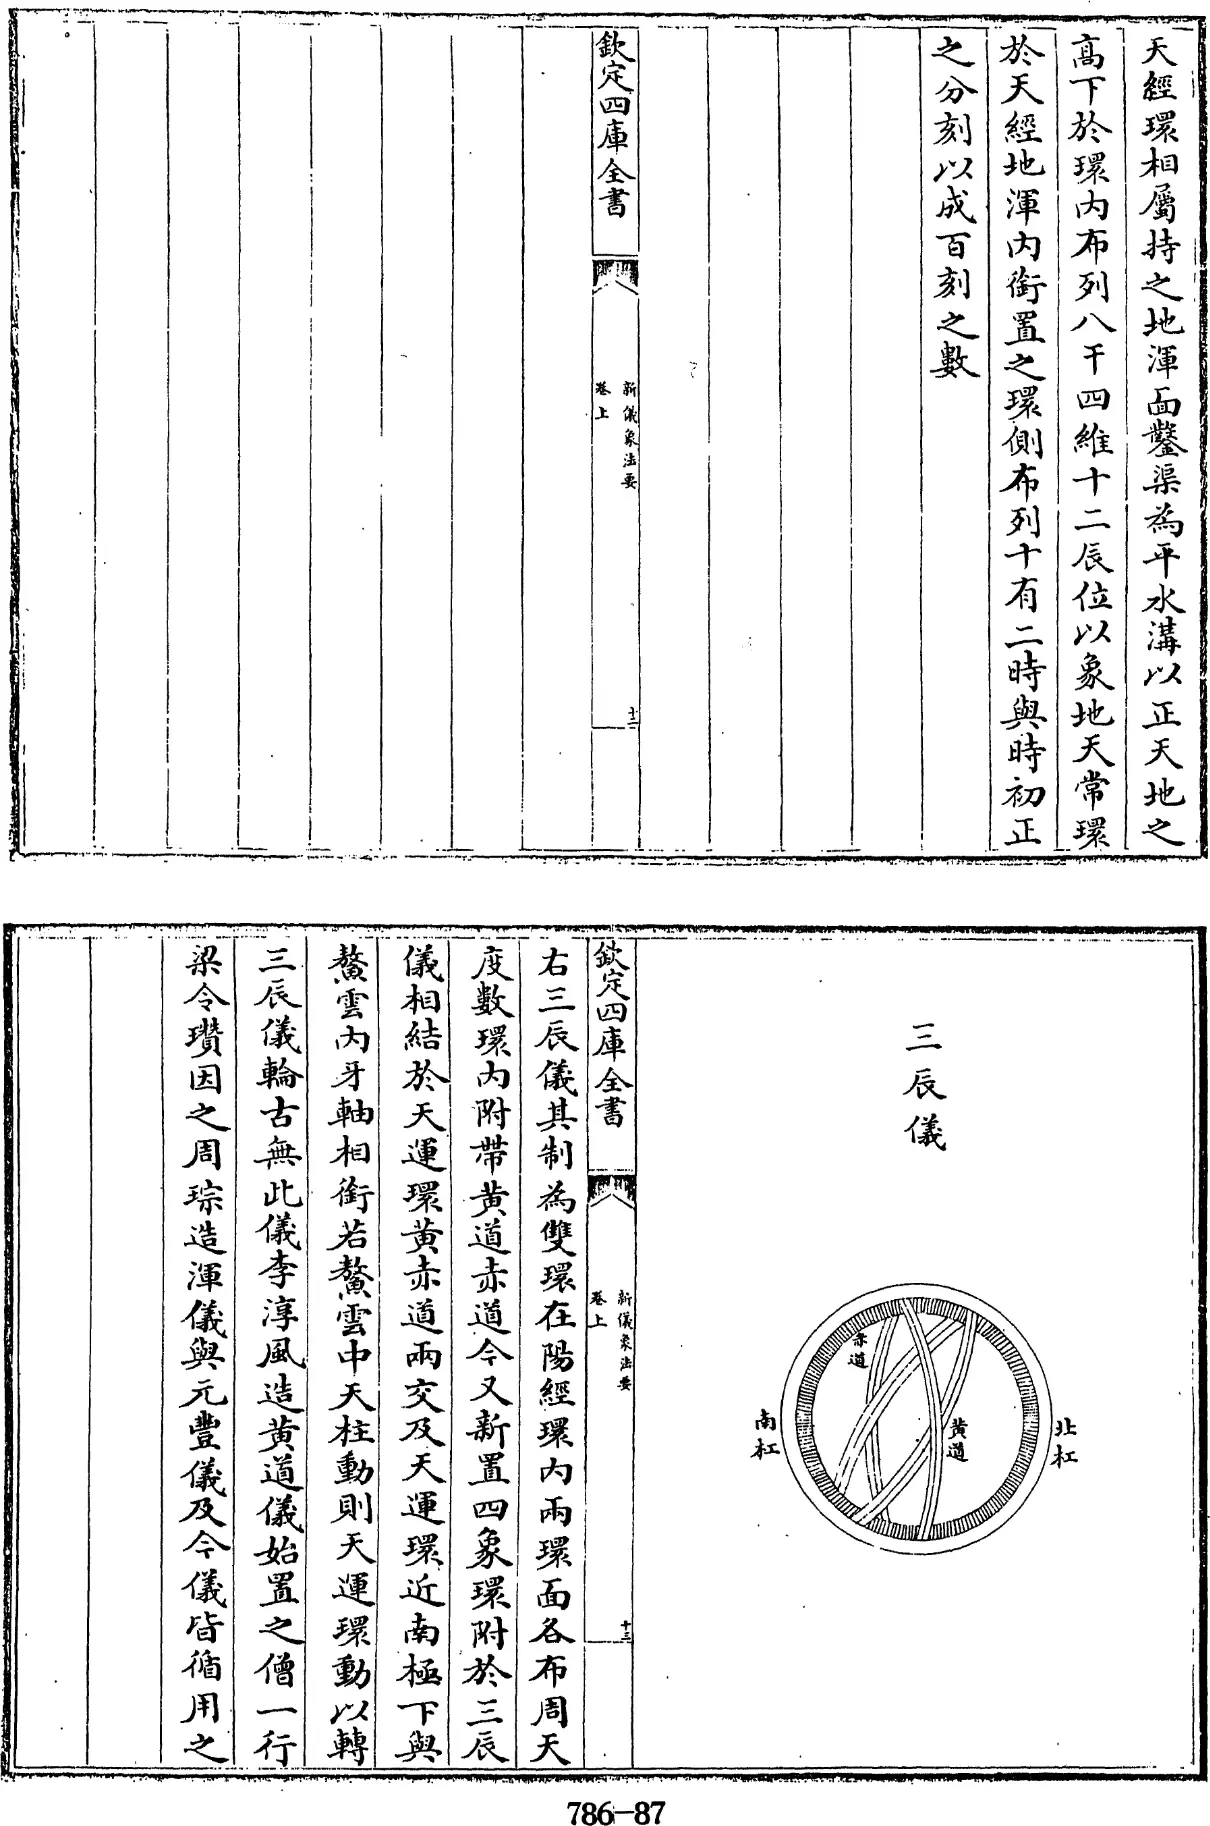 天經環相屬持之地渾面鑿渠為平水溝以正天地之
高下於環内布列八干四維十二辰位以象地天常環
於天經地渾内銜置之環側布列十有二時與時初正
之分刻以成百刻之數
欽定四庫全書
新儀象法要
卷上
十二
三辰儀
北杠
黄道
赤道
南杠
欽定四庫全書
新儀象法要
卷上
十三
右三辰儀其制為雙環在陽經環内兩環面各布周天
度數環内附帶黄道赤道今又新置四象環附於三辰
儀相結於天運環黄赤道兩交及天運環近南極下與
鰲雲内牙軸相銜若鰲雲中天柱動則天運環動以轉
三辰儀輪古無此儀李淳風造黄道儀始置之僧一行
梁令瓚因之周琮造渾儀與元豐儀及今儀皆循用之
786-87